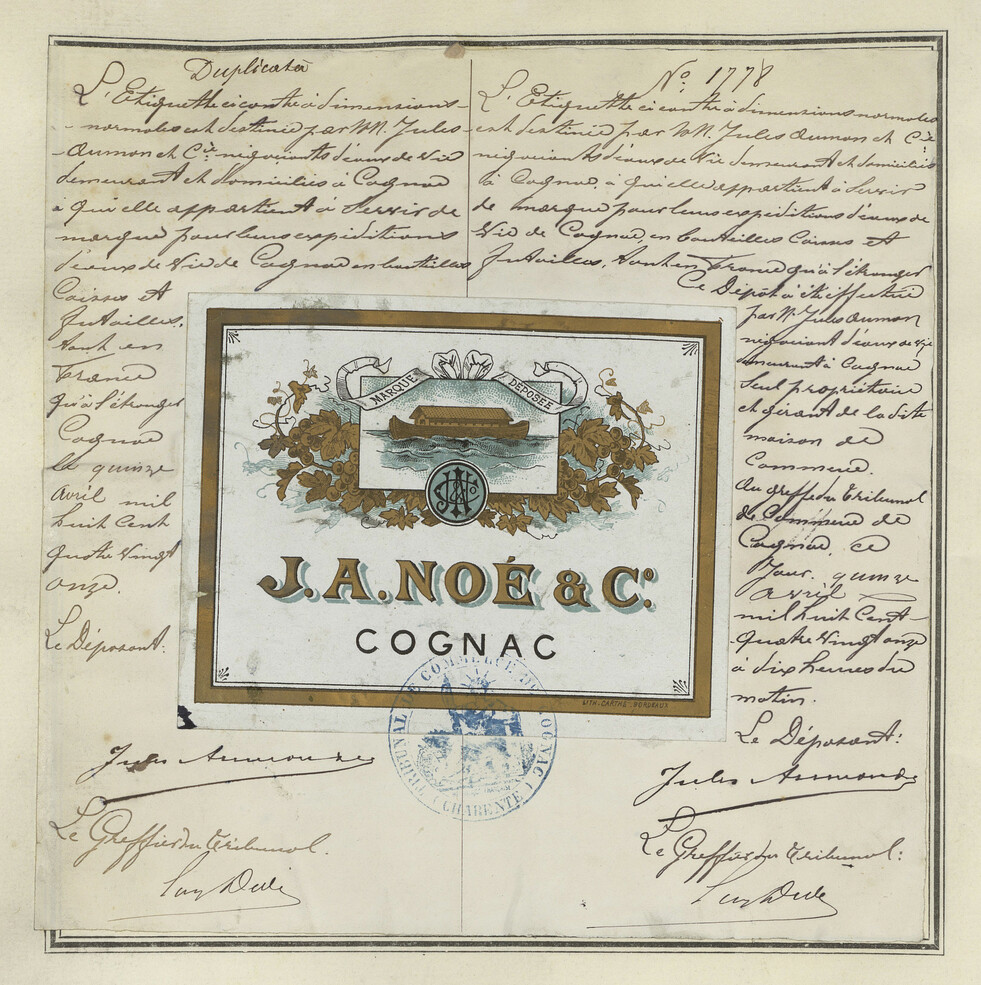 Duplicata
L'Etiquette ci contre à dimensions
normales est destinée par MM. Jules
Aumon et Cie négociants d'eaux de Vie
demeurant et domiciliés à Cognac
à qui elle appartient à Servir de
marque pour leurs expéditions
d'eaux de Vie de Cognac en bouteilles
Caisses et
futailles,
tant en
France
qu'à l'étranger
Cognac
le quinze
avril mil
huit Cent
quatre vingt
onze.
Le Déposant:
Le Greffier du Tribunal.
No. 1778
L'Etiquette ci contre à dimensions normales
est destinée par MM. Jules Aumon et Cie
négociants d'eaux de Vie demeurant et domiciliés
à Cognac, à qui elle appartient à Servir
de marque pour leurs expéditions d'eaux de
Vie de Cognac, en bouteilles Caisses et
futailles, tant en France qu'à l'étranger
Ce Dépôt à été effectué
par M. Jules Aumon
négociant d'eaux de vie
demeurant à Cognac
Seul propriétaire
et gérant de la dite
maison de
Commerce.
Au greffe du Tribunal
de Commerce de
Cognac, ce
Jour quinze
avril
mil huit Cent
quatre vingt onze
à dix heures du
matin.
Le Déposant:
Le Greffier du Tribunal:
MARQUE DEPOSÉE
J.A. NOÉ & Co.
COGNAC
LITH. CARTHE. BORDEAUX
TRIBUNAL DE COMMERCE DE COGNAC
(CHARENTE)